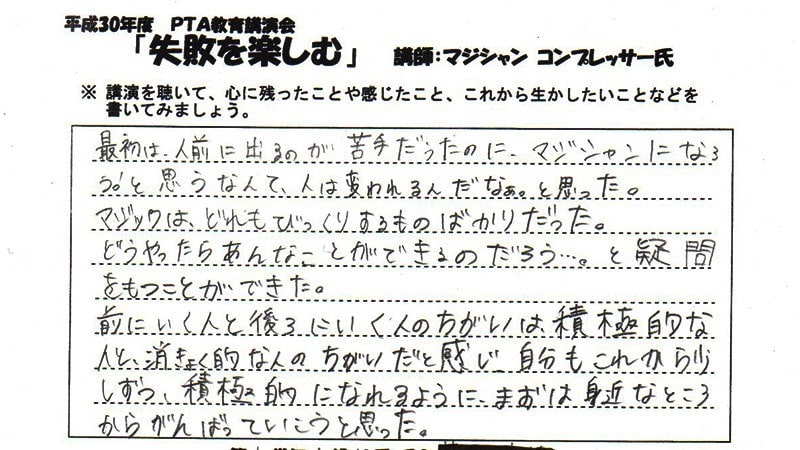 平成30年度 PTA教育講演会
「失敗を楽しむ」 講師:マジシャン コンプレッサー氏
※ 講演を聴いて、心に残ったことや感じたこと、これから生かしたいことなどを
書いてみましょう。
最初は、人前に出るのが苦手だったのに、マジシャンになろ
う!と思うなんて、人は変われるんだなぁ。と思った。
マジックは、どれもびっくりするものばかりだった。
どうやったらあんなことができるのだろう…。と疑問
をもつことができた。
前にいく人と後ろにいく人のちがいは、積極的な
人と、消きょく的な人のちがいだと感じ、自分もこれから少
しずつ、積極的になれるように、まずは身近なところ
からがんばっていこうと思った。